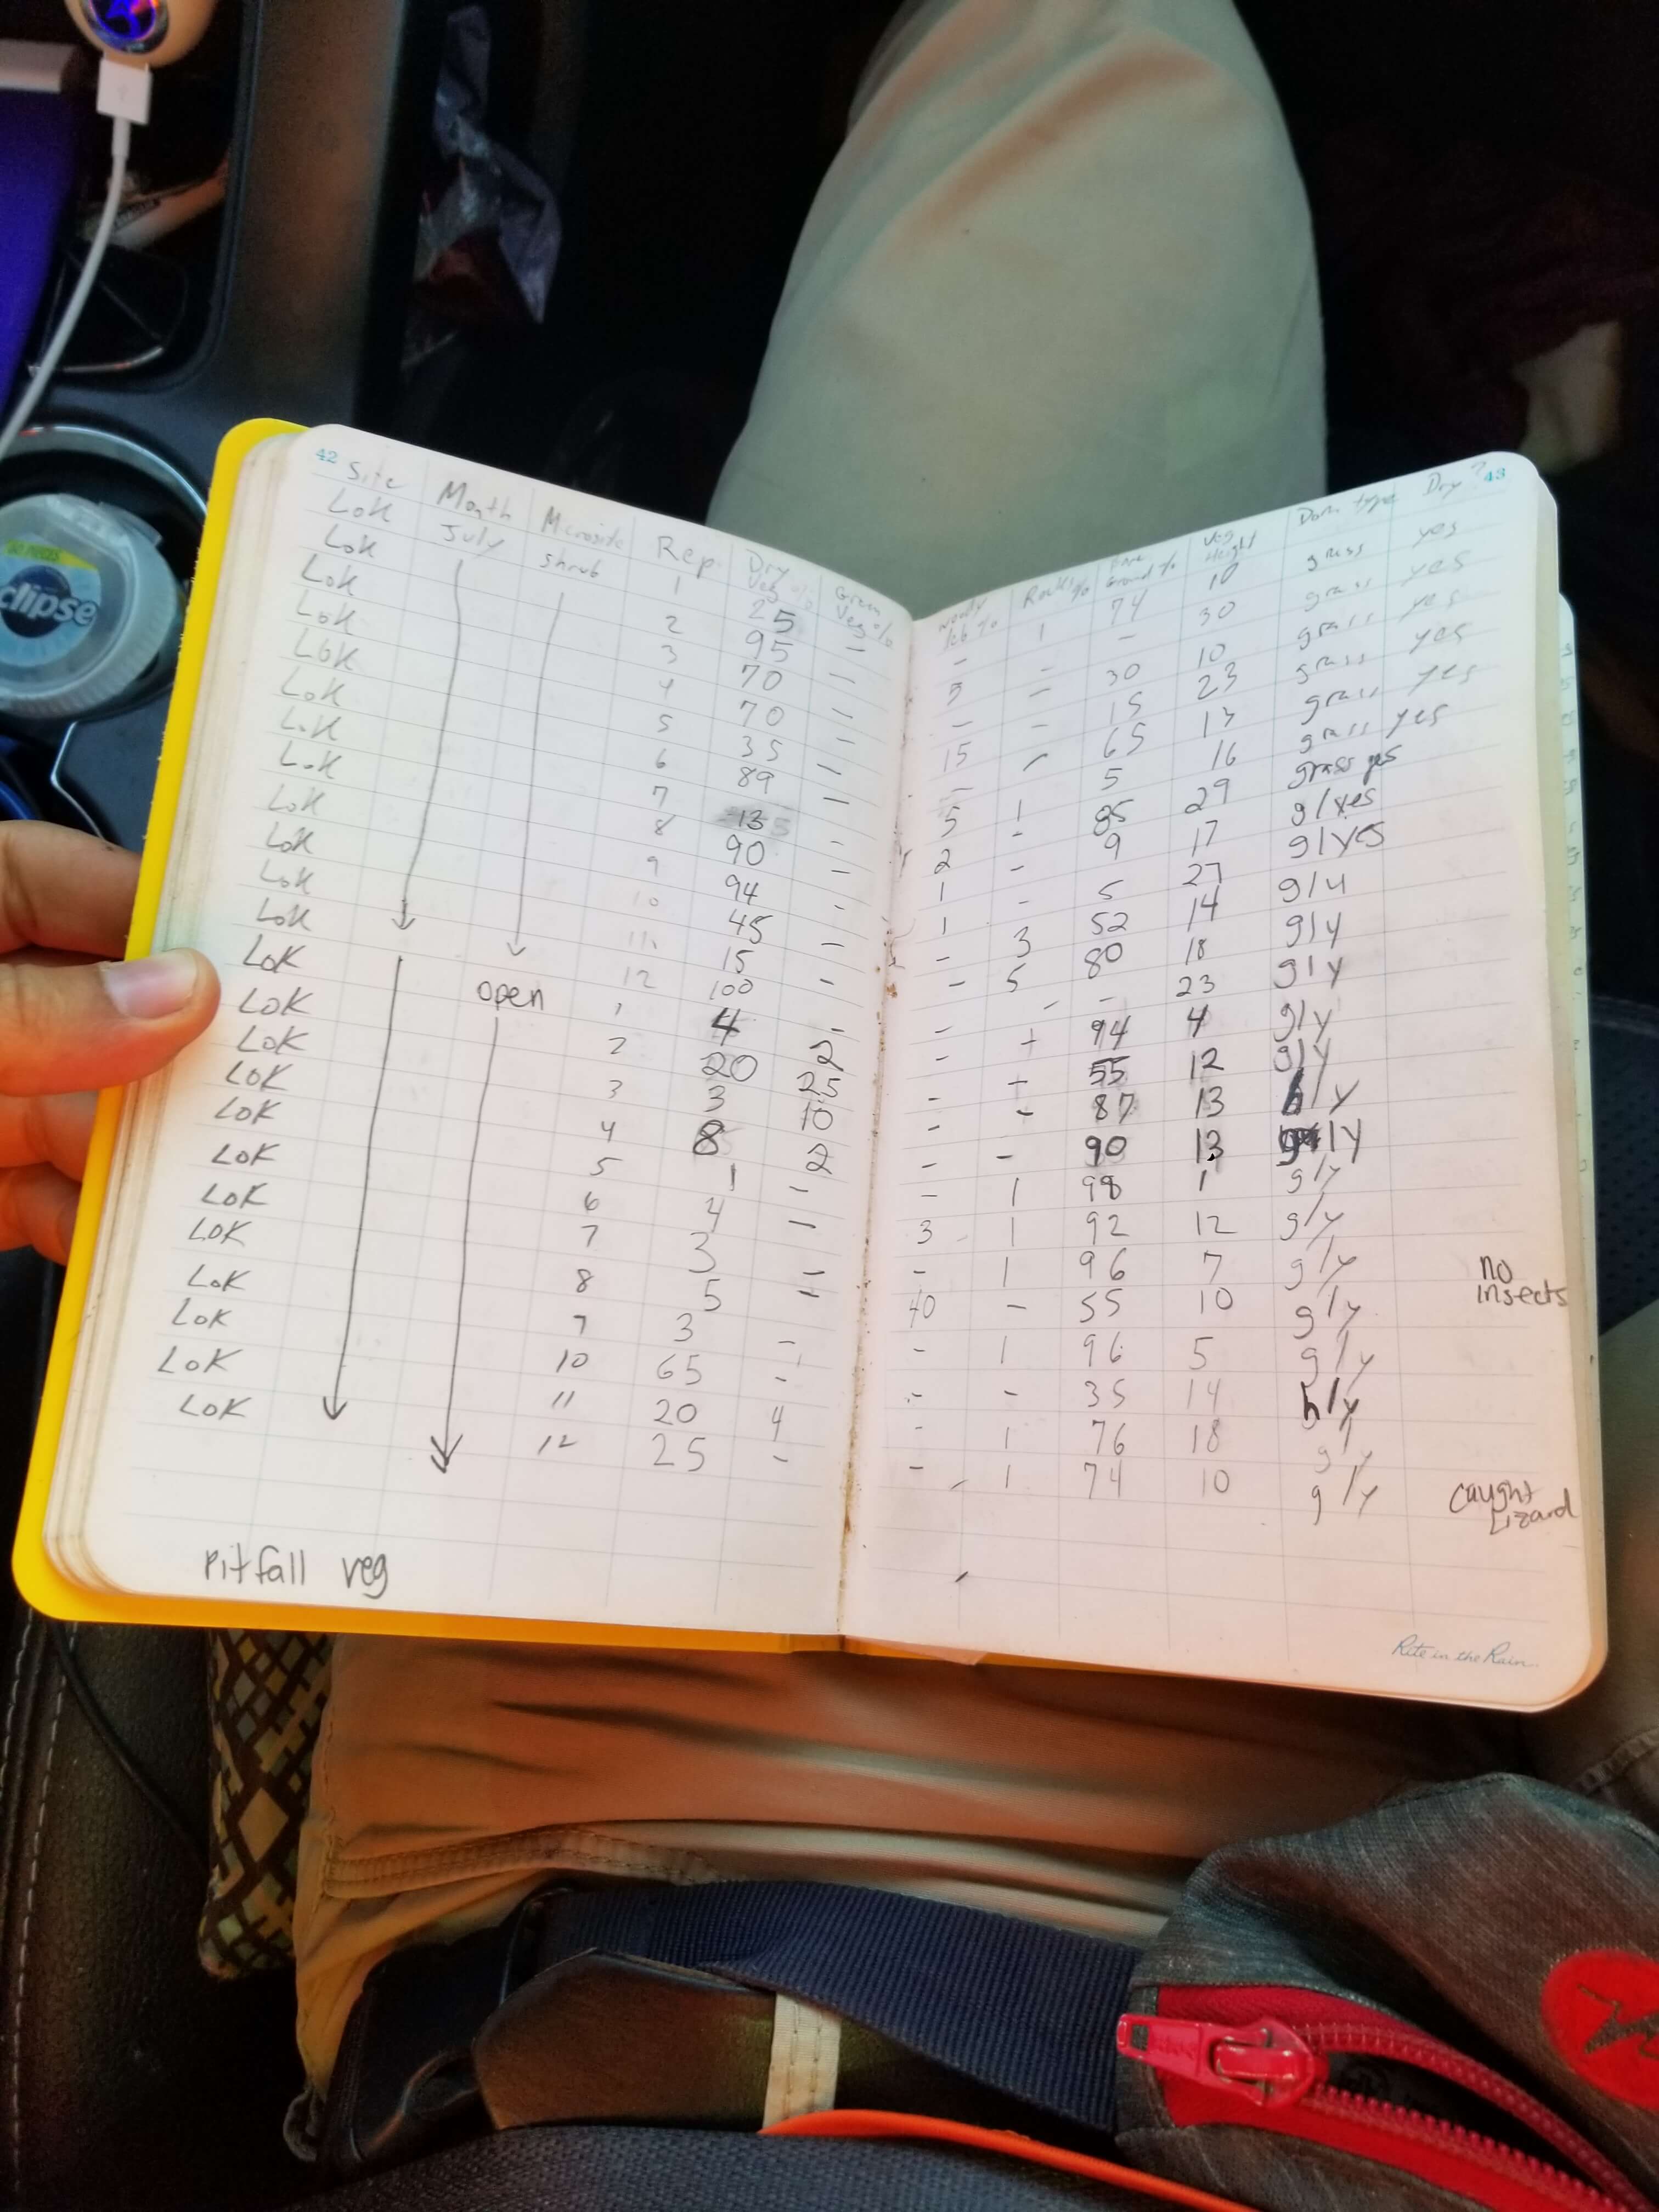 42
Site Month Microsite Rep. Dry Veg % Green Veg %
LOK July shrub 1 25 -
LOK 2 95 -
LOK 3 70 -
LOK 4 70 -
LOK 5 35 -
LOK 6 89 -
LOK 7 13 -
LOK 8 90 -
LOK 9 94 -
LOK 10 45 -
LOK 11 15 -
LOK 12 100 -
LOK open 1 4 2
LOK 2 20 25
LOK 3 3 10
LOK 4 8 2
LOK 5 1 -
LOK 6 4 -
LOK 7 3 -
LOK 8 5 -
LOK 9 3 -
LOK 10 65 -
LOK 11 20 4
LOK 12 25 -
Pitfall veg
43
Woody % Rock % Bare Ground % Veg Height Dom type Dry?
- 1 74 10 grass yes
5 - - 30 grass yes
- - 30 10 grass yes
15 - 15 23 grass yes
- - 65 13 grass yes
5 1 5 16 grass yes
2 - 85 29 grass yes
1 - 9 17 g/yes
1 - 5 27 g/yes
- 3 52 14 g/y
- 5 80 18 g/y
- - - 23 g/y
- - 94 4 g/y
- - 55 12 g/y
- - 87 13 h/y
- - 90 13 /y
- 1 98 1 g/y
3 1 92 12 g/y
- 1 96 7 g/y
40 - 55 10 g/y no insects
- 1 96 5 g/y
- - 35 14 h/y
- 1 76 18 g/y
- 1 74 10 g/y caught Lizard
Rite in the Rain
clipse